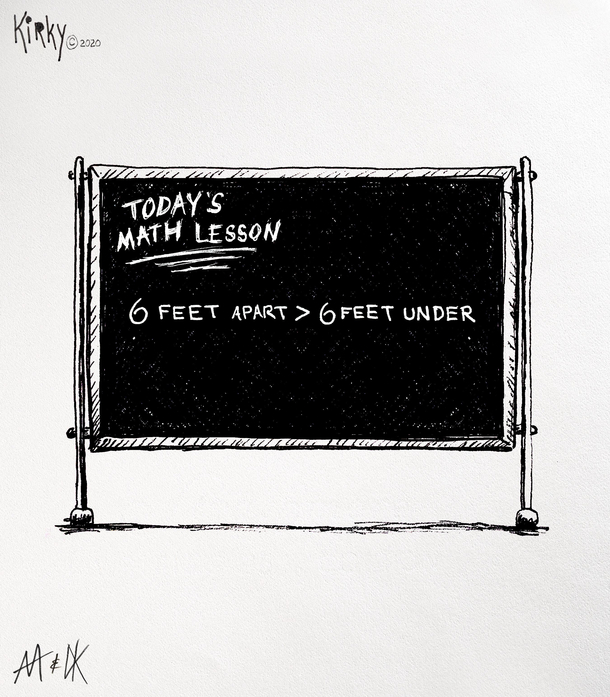 Kirky © 2020
TODAY'S
MATH LESSON
6 FEET APART > 6 FEET UNDER
AA & DK